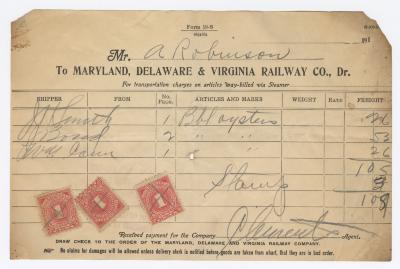 Form 19-B
191
Mr. A Robinson
To MARYLAND, DELAWARE & VIRGINIA RAILWAY CO., Dr.
For transportation charges on articles way-billed via Steamer
SHIPPER FROM No. Pkgs. ARTICLES AND MARKS WEIGHT Rate FREIGHT
Smith 1 Bbl Oysters 26
Bond 2 " " 53
1 26
105
Stamp 3
108
Received payment for the Company Agent.
DRAW CHECK TO THE ORDER OF THE MARYLAND, DELAWARE AND VIRGINIA RAILWAY COMPANY.
No claims for damages will be allowed unless delivery clerk is notified before goods are taken from wharf, that they are in bad order.